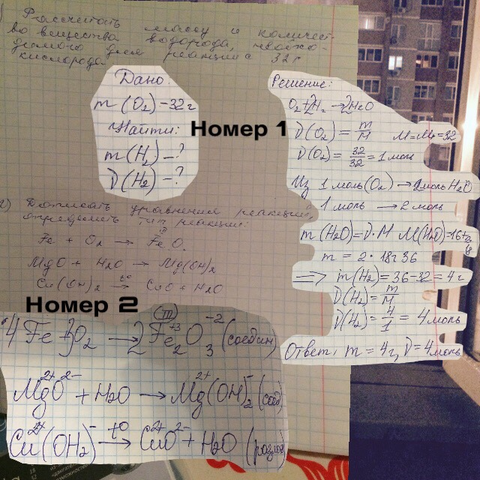 Рассчитать массу и количест-
во вещества водорода, необхо-
димого для реакции с 32 г
кислорода.
Дано:
m(O₂)-32г
Найти:
m(H₂)-?
ν(H₂)-?
Номер 1
Решение:
O₂+2H₂→2H₂O
ν(O₂) = m/M M=Mr=32
ν(O₂) = 32/32 = 1 моль
Из 1 моль(O₂) → 2моль H₂O
1 моль → 2 моль
m(H₂O)=ν·M M(H₂O)=16+2=18
m = 2·18=36
⟹ m(H₂)=36-32=4г
ν(H₂)= m/M
ν(H₂)= 4/1 = 4моль
Ответ: m = 4г, ν=4моль
2) Дописать уравнения реакции,
определить тип реакции:
Fe + O₂ → FeO.
MgO + H₂O → Mg(OH)₂
Cu(OH)₂ →t° CuO + H₂O
Номер 2
(III)
4Fe+3O₂ → 2Fe₂⁺³O₃⁻² (соедин)
Mg²⁺O²⁻+H₂O → Mg²⁺(OH)₂⁻ (соед)
Cu²⁺(OH₂)⁻ →t° Cu²⁺O²⁻+H₂O (разлож)